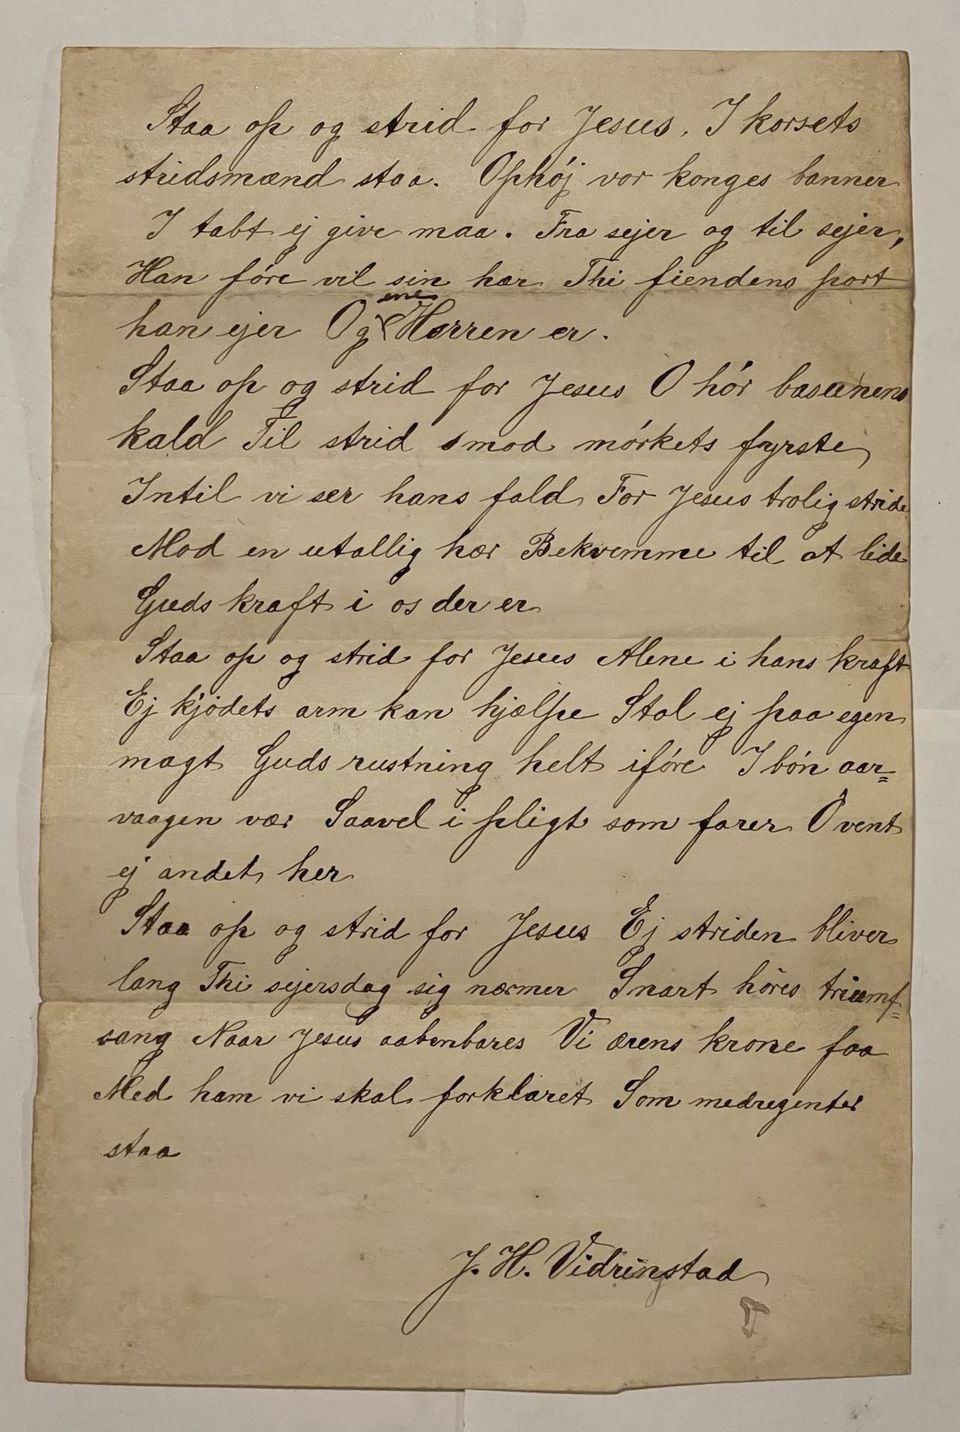 Staa op og strid for Jesus. I korsets
stridsmænd staa. Ophöj vor konges banner
I tabt ej give maa. Fra sejer og til sejer,
Han före vil sin hær Thi fiendens port
han ejer Og ene Herren er.
Staa op og strid for Jesus O hör basunens
kald Til strid mod mörkets fyrste
Intil vi ser hans fald For Jesus trolig stride
Mod en utallig hær Bekvemme til at lide
Guds kraft i os der er
Staa op og strid for Jesus Alene i hans kraft
Ej kjödets arm kan hjælpe Stol ej paa egen
magt Guds rustning helt iföre I bön aar=
vaagen vær Saavel i pligt som farer O vent
ej andet her
Staa op og strid for Jesus Ej striden bliver
lang Thi sejersdag sig nærmer Snart höres triumf=
sang Naar Jesus aabenbares Vi ærens krone faa
Med ham vi skal forklaret Som medregenter
staa
J. H.